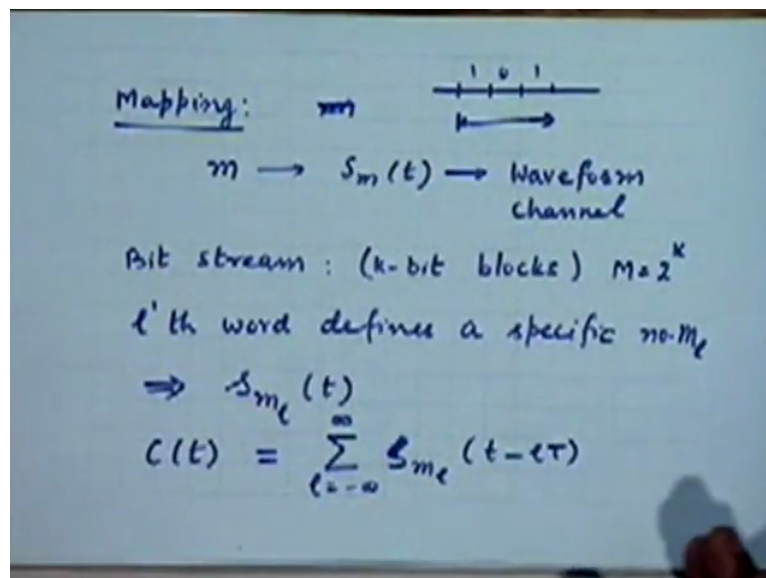 1 0 1
Mapping: m
m → Sm(t) → Waveform
channel
Bit stream: (k-bit blocks) M=2^k
l'th word defines a specific no. m_l
⇒ S_{m_l}(t)
C(t) = ∑_{l=-∞}^{∞} S_{m_l}(t-lT)